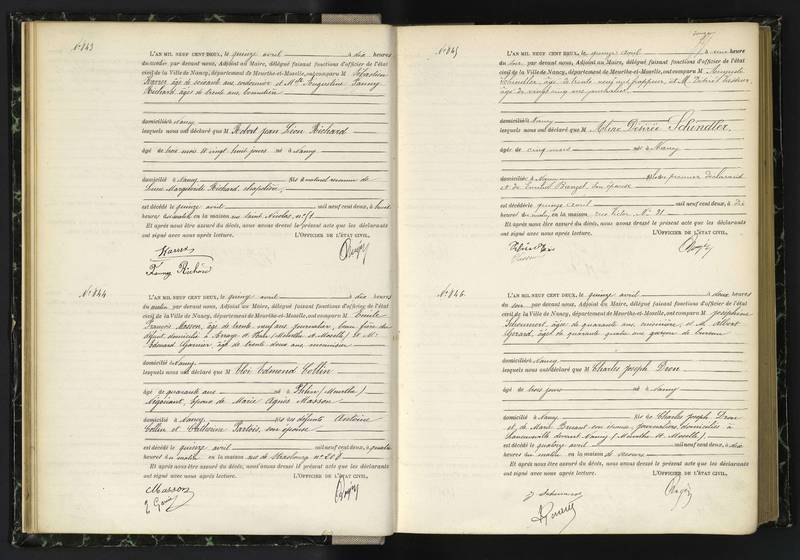 N° 843
L'AN MIL NEUF CENT DEUX, le quinze avril à dix heures
du matin par devant nous, Adjoint au Maire, délégué faisant fonctions d'officier de l'état
civil de la Ville de Nancy, département de Meurthe-et-Moselle, ont comparu M Sébastien
Harrer, âgé de soixante ans, cordonnier et Mlle Augustine Fanny
Richard, âgée de trente ans,
domiciliés à Nancy
lesquels nous ont déclaré que M Robert Jean Léon Richard
âgé de trois mois et vingt huit jours né à Nancy
domicilié à Nancy fils naturel reconnu de
Marguerite Richard, chapelière,
est décédé le quinze avril mil neuf cent deux, à
heures du matin en la maison rue Saint Nicolas, n°
Et après nous être assuré du décès, nous avons dressé le présent acte que les déclarants
ont signé avec nous après lecture. L'OFFICIER DE L'ÉTAT CIVIL,
Harrer
Fanny Richard
N° 844
L'AN MIL NEUF CENT DEUX, le quinze avril à dix heures
du matin par devant nous, Adjoint au Maire, délégué faisant fonctions d'officier de l'état
civil de la Ville de Nancy, département de Meurthe-et-Moselle, ont comparu M Emile
François Masson, âgé de trente neuf ans, journalier, beau frère du
défunt domicilié à Art (Meurthe et Moselle) et M.
Edouard Garnier, âgé de trente deux ans,
domicilié à Nancy
lesquels nous ont déclaré que M Eloi Edmond Collin
âgé de quarante ans né à (Meurthe)
Négociant, époux de Marie Agnès Masson
domicilié à Nancy fils des défunts Antoine
Collin et Catherine son épouse
est décédé le quinze avril mil neuf cent deux, à quatre
heures du matin en la maison rue de Strasbourg n° 208
Et après nous être assuré du décès, nous avons dressé le présent acte que les déclarants
ont signé avec nous après lecture. L'OFFICIER DE L'ÉTAT CIVIL,
Masson
N° 845
L'AN MIL NEUF CENT DEUX, le quinze avril à une heure
du soir par devant nous, Adjoint au Maire, délégué faisant fonctions d'officier de l'état
civil de la Ville de Nancy, département de Meurthe-et-Moselle, ont comparu M Auguste
Schindler, âgé de trente neuf ans frappeur, et M. Désiré
âgé de vingt cinq ans journalier
domiciliés à Nancy
lesquels nous ont déclaré que M Aline Désirée Schindler.
âgée de cinq mois née à Nancy
domiciliée à Nancy fille du premier déclarant
et de son épouse
est décédée le quinze avril mil neuf cent deux, à dix
heures du matin, en la maison rue Victor, N° 21
Et après nous être assuré du décès, nous avons dressé le présent acte que les déclarants
ont signé avec nous après lecture. L'OFFICIER DE L'ÉTAT CIVIL,
N° 846
L'AN MIL NEUF CENT DEUX, le quinze avril à deux heures
du soir par devant nous, Adjoint au Maire, délégué faisant fonctions d'officier de l'état
civil de la Ville de Nancy, département de Meurthe-et-Moselle, ont comparu M Joséphine
âgée de quarante ans, cuisinière, et M. Albert
Gérard, âgé de quarante quatre ans garçon de bureau
domiciliés à Nancy
lesquels nous ont déclaré que M Charles Joseph Dron
âgé de trois jours né à Nancy
domicilié à Nancy fils de Charles Joseph Dron
et de Marie son épouse, journaliers, domiciliés à
Laneuveville devant Nancy (Meurthe et Moselle)
est décédé le quatorze avril mil neuf cent deux, à dix
heures du matin en la maison de secours
Et après nous être assuré du décès, nous avons dressé le présent acte que les déclarants
ont signé avec nous après lecture. L'OFFICIER DE L'ÉTAT CIVIL,